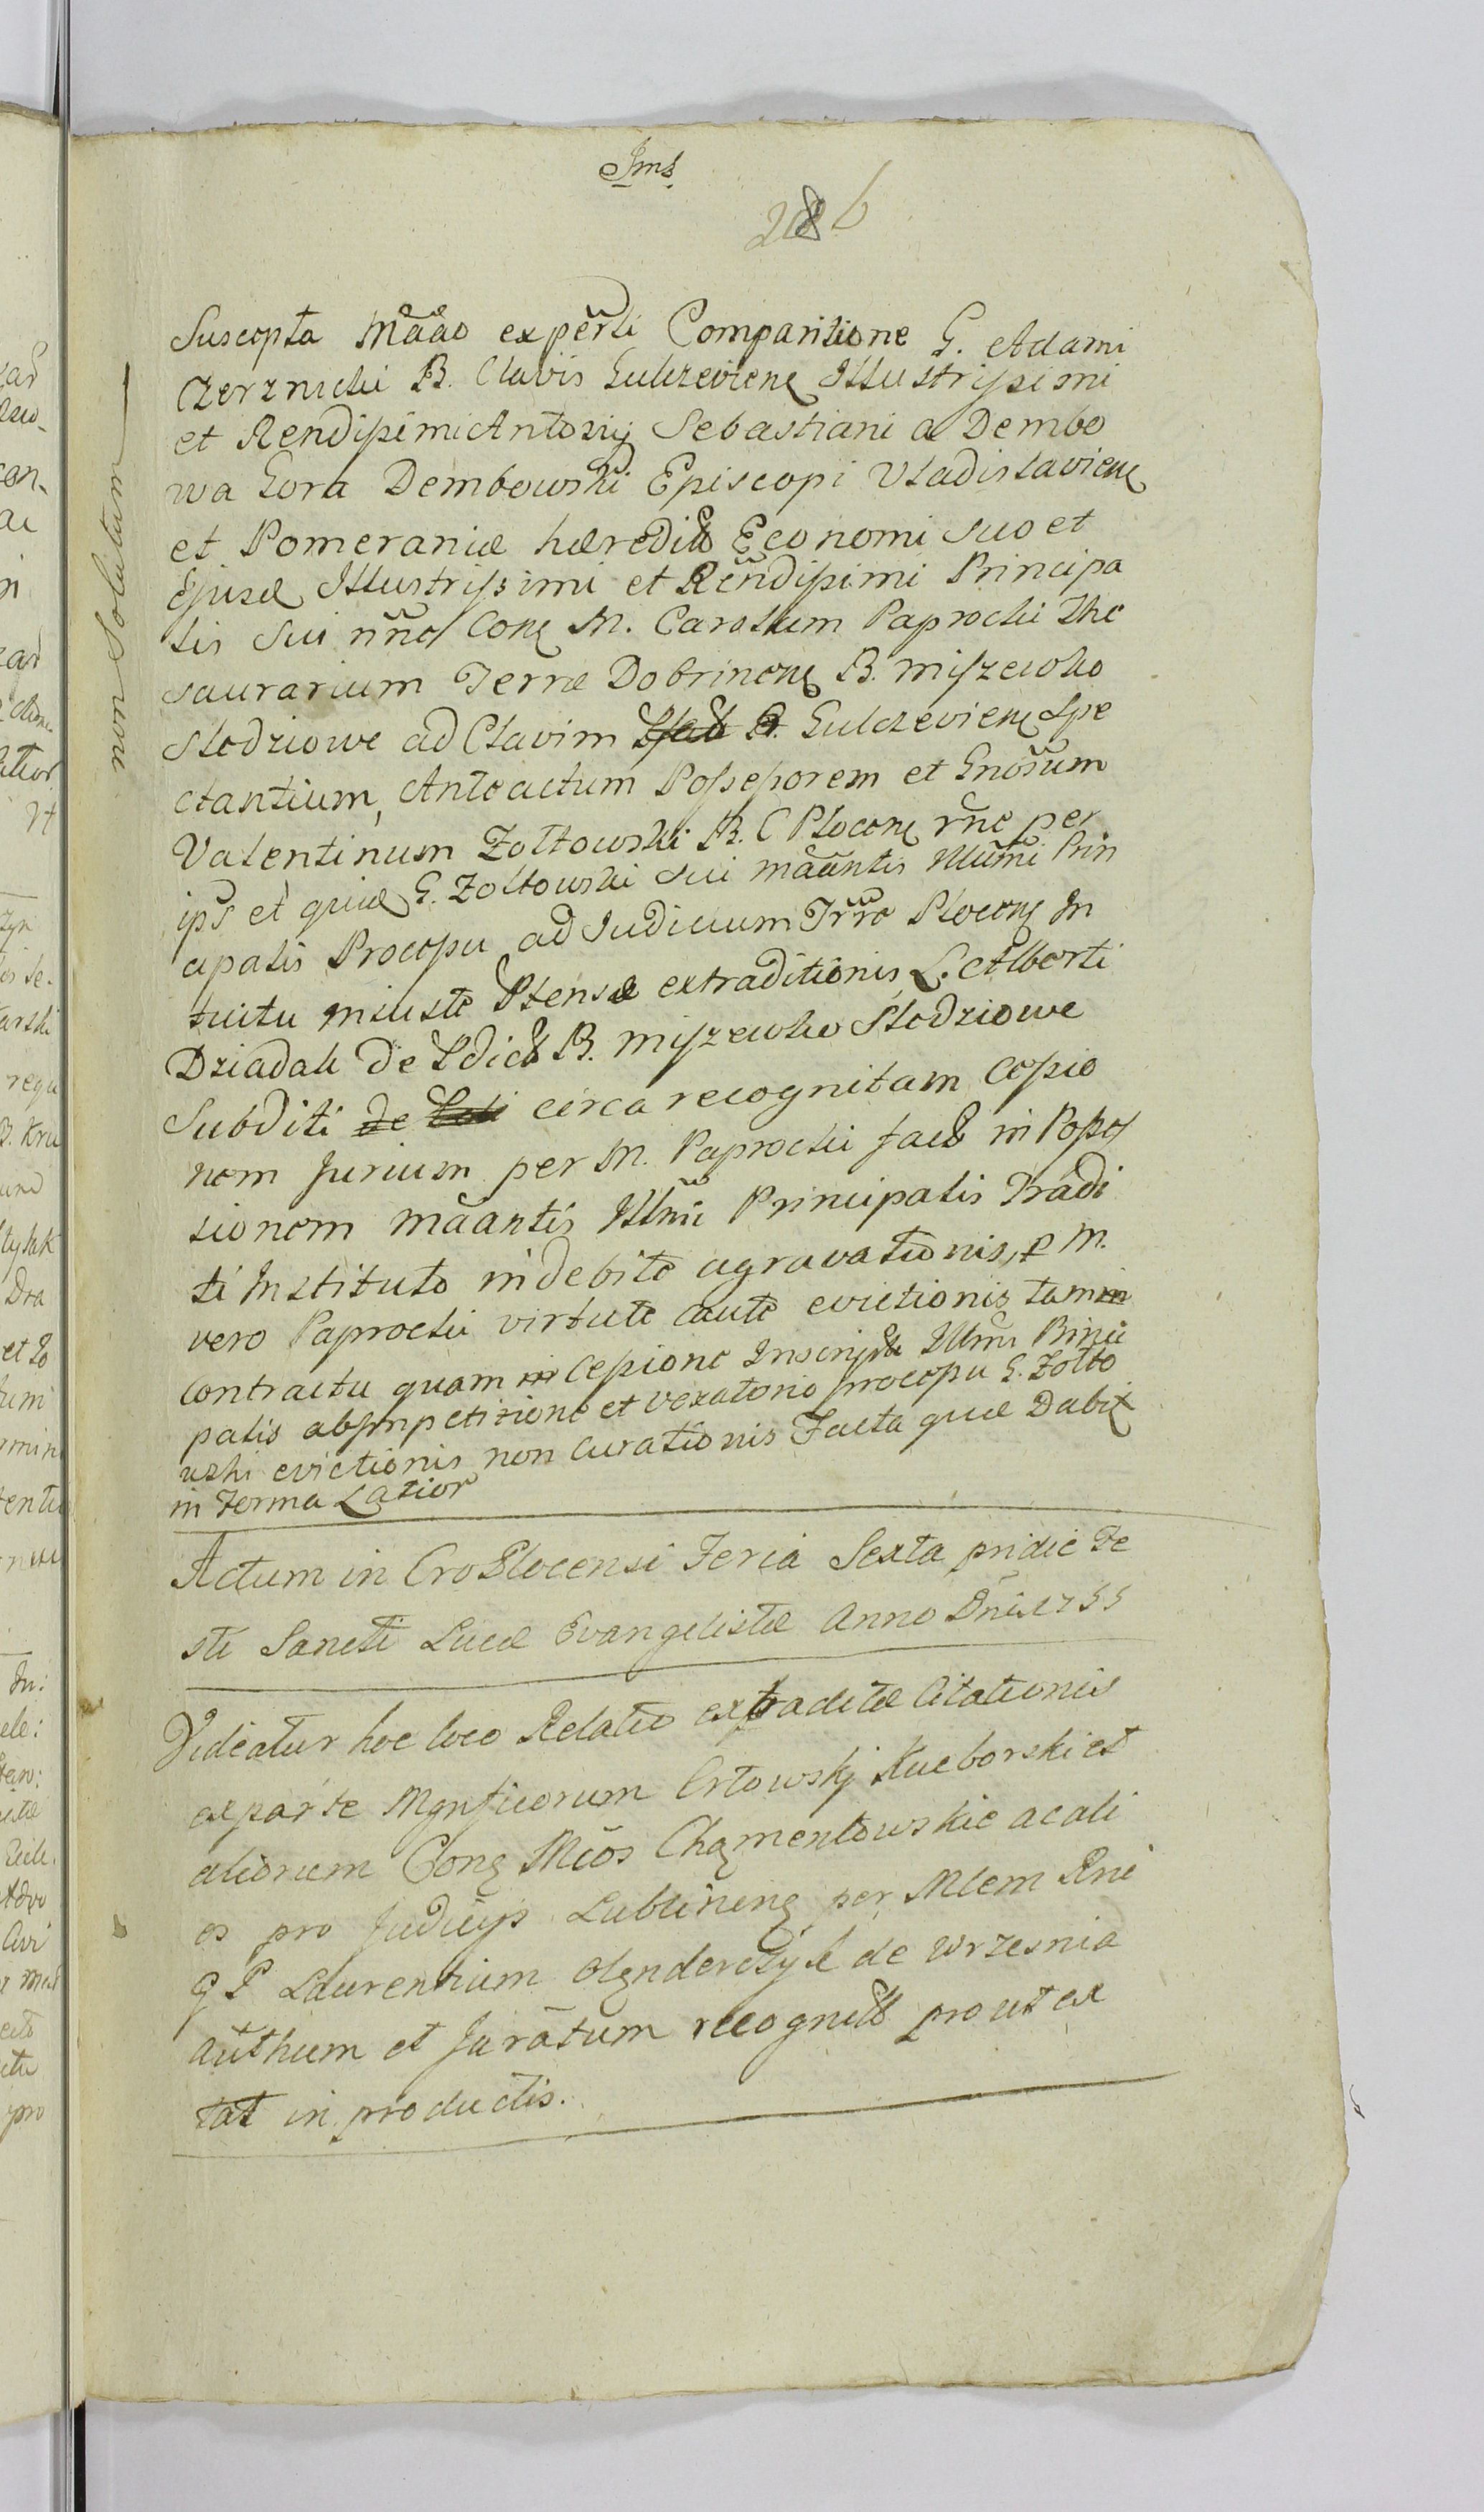 Jms
286
non Solutum
Suscepta Mããõ expẽrti Comparitione G. Adami
Czerznicki B. Clavis Gulczeviens Illustrissimi
et Rendissimi Antonij Sebastiani a Dembo
wa Gora Dembowski Episcopi Vladislaviens
et Pomeraniæ hæredis Economi suo et
Ejusd Illustrissimi et Rẽndissimi Principa
lis sui nñe Cons M. Carolum Paprocki The
saurarium Terræ Dobrinens B. Miszewko
Stedziowe ad Clavim Gulczeviens Spe
ctantium, Anteactum Possessorem et Gnõsum
Valentinum Zołtowski B. C Plocens rñe per
ips et quia G. Zołtowski sui mããntis Illũmi Prin
cipalis Processu ad Judicium Trre Plocens In
tuitu injuste Ptensæ extraditionis L. Alberti
Dziadak de Pdict B. Miszewko Stedziowe
Subditi de circa recognitam Cessio
nem Jurium per M. Paprocki fact in Posses
sionem mããntis Illmi Principalis Tradi
ti Instituto indebite agravationis, P M.
vero Paprocki virtute caute evictionis tam in
Contractu quam in Cessione Inscript Illmi Princi
palis ab impetitione et vexatorio processu G. Zołto
wski evictionis non curationis Facta quæ Dabit
in Forma Latior
Actum in Cro Plocensi Feria Sexta pridie Fe
sti Sancti Lucæ Evangelistæ Anno Dñi 1755
Videatur hoc loco Relatio extraditæ Citationis
ex parte Mgnficorum Ertowskj Kucborski et
aliorum Cons Mcos Chamentowskie ac ali
os pro Judicijs Lublinens per Mlem Rni
G P Laurentium Olenderczyk de Wrzesnia
Authum et Juratum recognit prout ex
tat in productis.